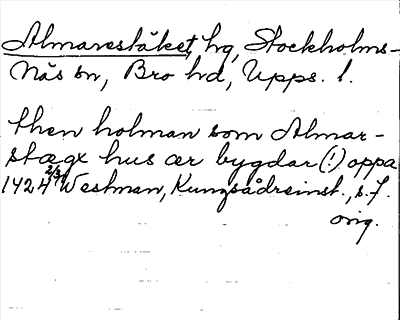 Almarestäket, hg, Stockholms-
Näs sn, Bro hd, Upps. l.
then holman som Almar-
stægx hus ær bygdar (!) oppa
1424 2/3 Westman, Kungsådreinst., s. 7.
orig.